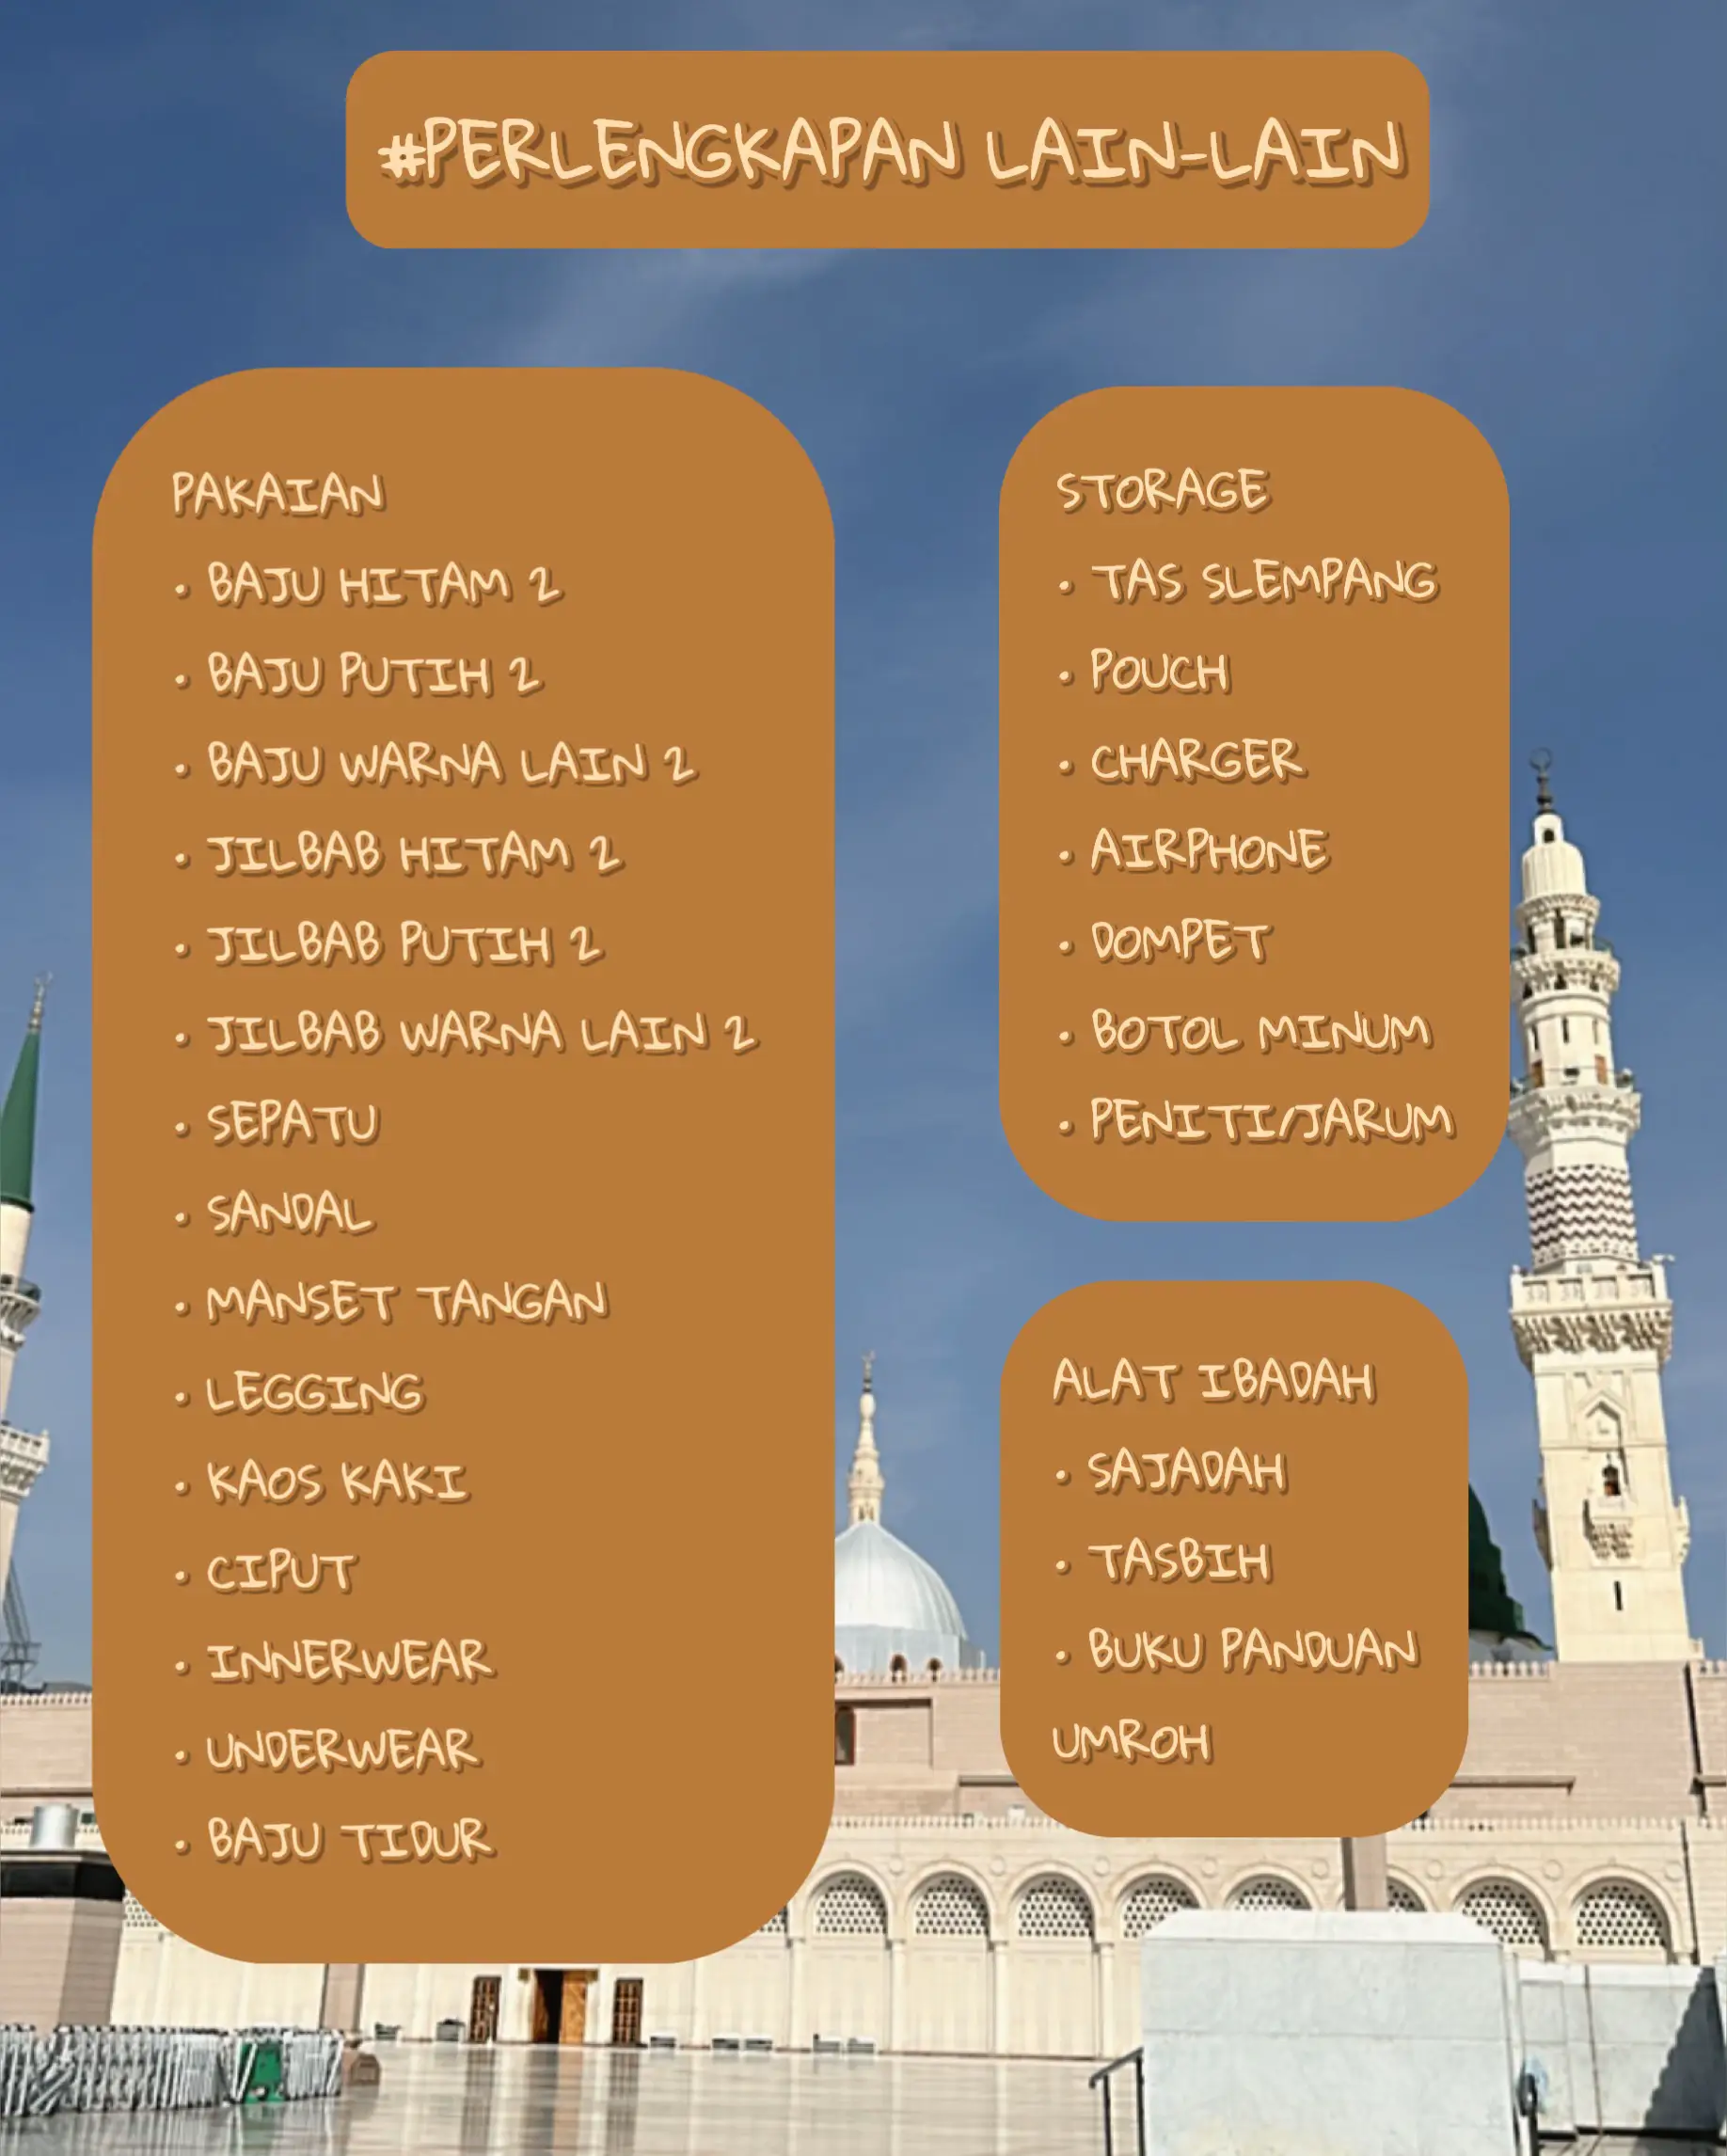 #PERLENGKAPAN LAIN-LAIN
PAKAIAN
• BAJU HITAM 2
• BAJU PUTIH 2
• BAJU WARNA LAIN 2
• JILBAB HITAM 2
• JILBAB PUTIH 2
• JILBAB WARNA LAIN 2
• SEPATU
• SANDAL
• MANSET TANGAN
• LEGGING
• KAOS KAKI
• CIPUT
• INNERWEAR
• UNDERWEAR
• BAJU TIDUR
STORAGE
• TAS SLEMPANG
• POUCH
• CHARGER
• AIRPHONE
• DOMPET
• BOTOL MINUM
• PENITI/JARUM
ALAT IBADAH
• SAJADAH
• TASBIH
• BUKU PANDUAN
UMROH